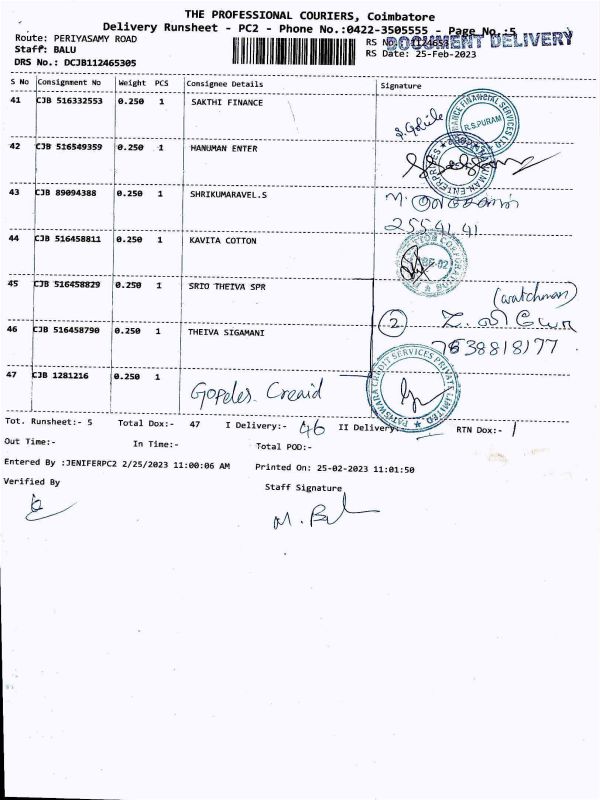 THE PROFESSIONAL COURIERS, Coimbatore
Delivery Runsheet - PC2 - Phone No.:0422-3505555 - Page No.:5
Route: PERIYASAMY ROAD
RS No.:
DOCUMENT DELIVERY
Staff: BALU
RS Date: 25-Feb-2023
DRS No.: DCJB112465305
S No Consignment No Weight PCS Consignee Details Signature
41 CJB 516332553 0.250 1 SAKTHI FINANCE
R.S.PURAM
42 CJB 516549359 0.250 1 HANUMAN ENTER
43 CJB 89094388 0.250 1 SHRIKUMARAVEL.S
25541 41
44 CJB 516458811 0.250 1 KAVITA COTTON
45 CJB 516458829 0.250 1 SRIO THEIVA SPR
(watchman)
46 CJB 516458790 0.250 1 THEIVA SIGAMANI
2
47 CJB 1281216 0.250 1
CREDIT SERVICES PRIVATE LIMITED
Tot. Runsheet:- 5 Total Dox:- 47 I Delivery:- 46 II Delivery:- RTN Dox:- 1
Out Time:- In Time:- Total POD:-
Entered By :JENIFERPC2 2/25/2023 11:00:06 AM Printed On: 25-02-2023 11:01:50
Verified By Staff Signature